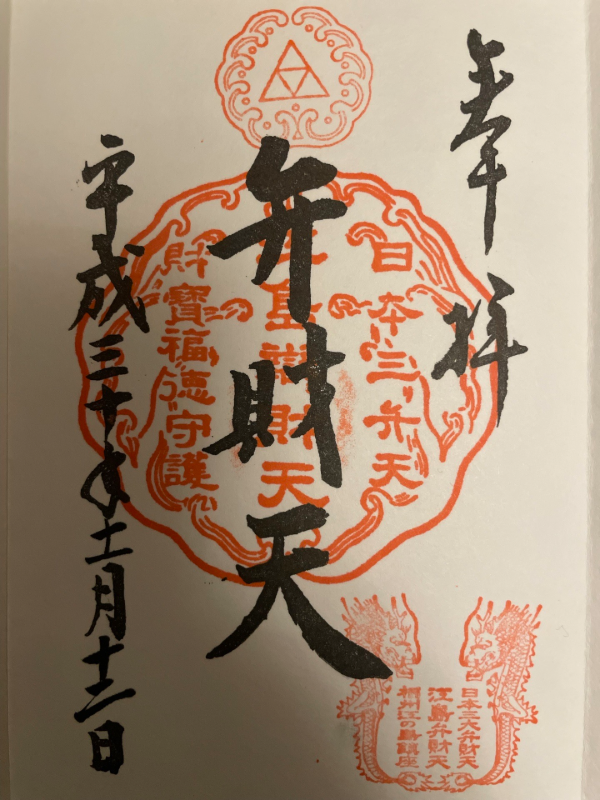 奉拝
日本三弁天
江島辯財天
財寶福徳守護
弁財天
平成三十年十一月十二日
日本三大弁財天
江島弁財天
相州江の島鎮座